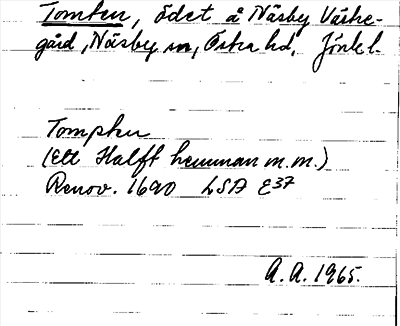 Tomten, ödet å Näsby Väste-
gård, Näsby sn, Östra hd, Jönk l.
Tompten
(Ett Halfft hemman m.m.)
Renov. 1690 LSA E37
A.A. 1965.